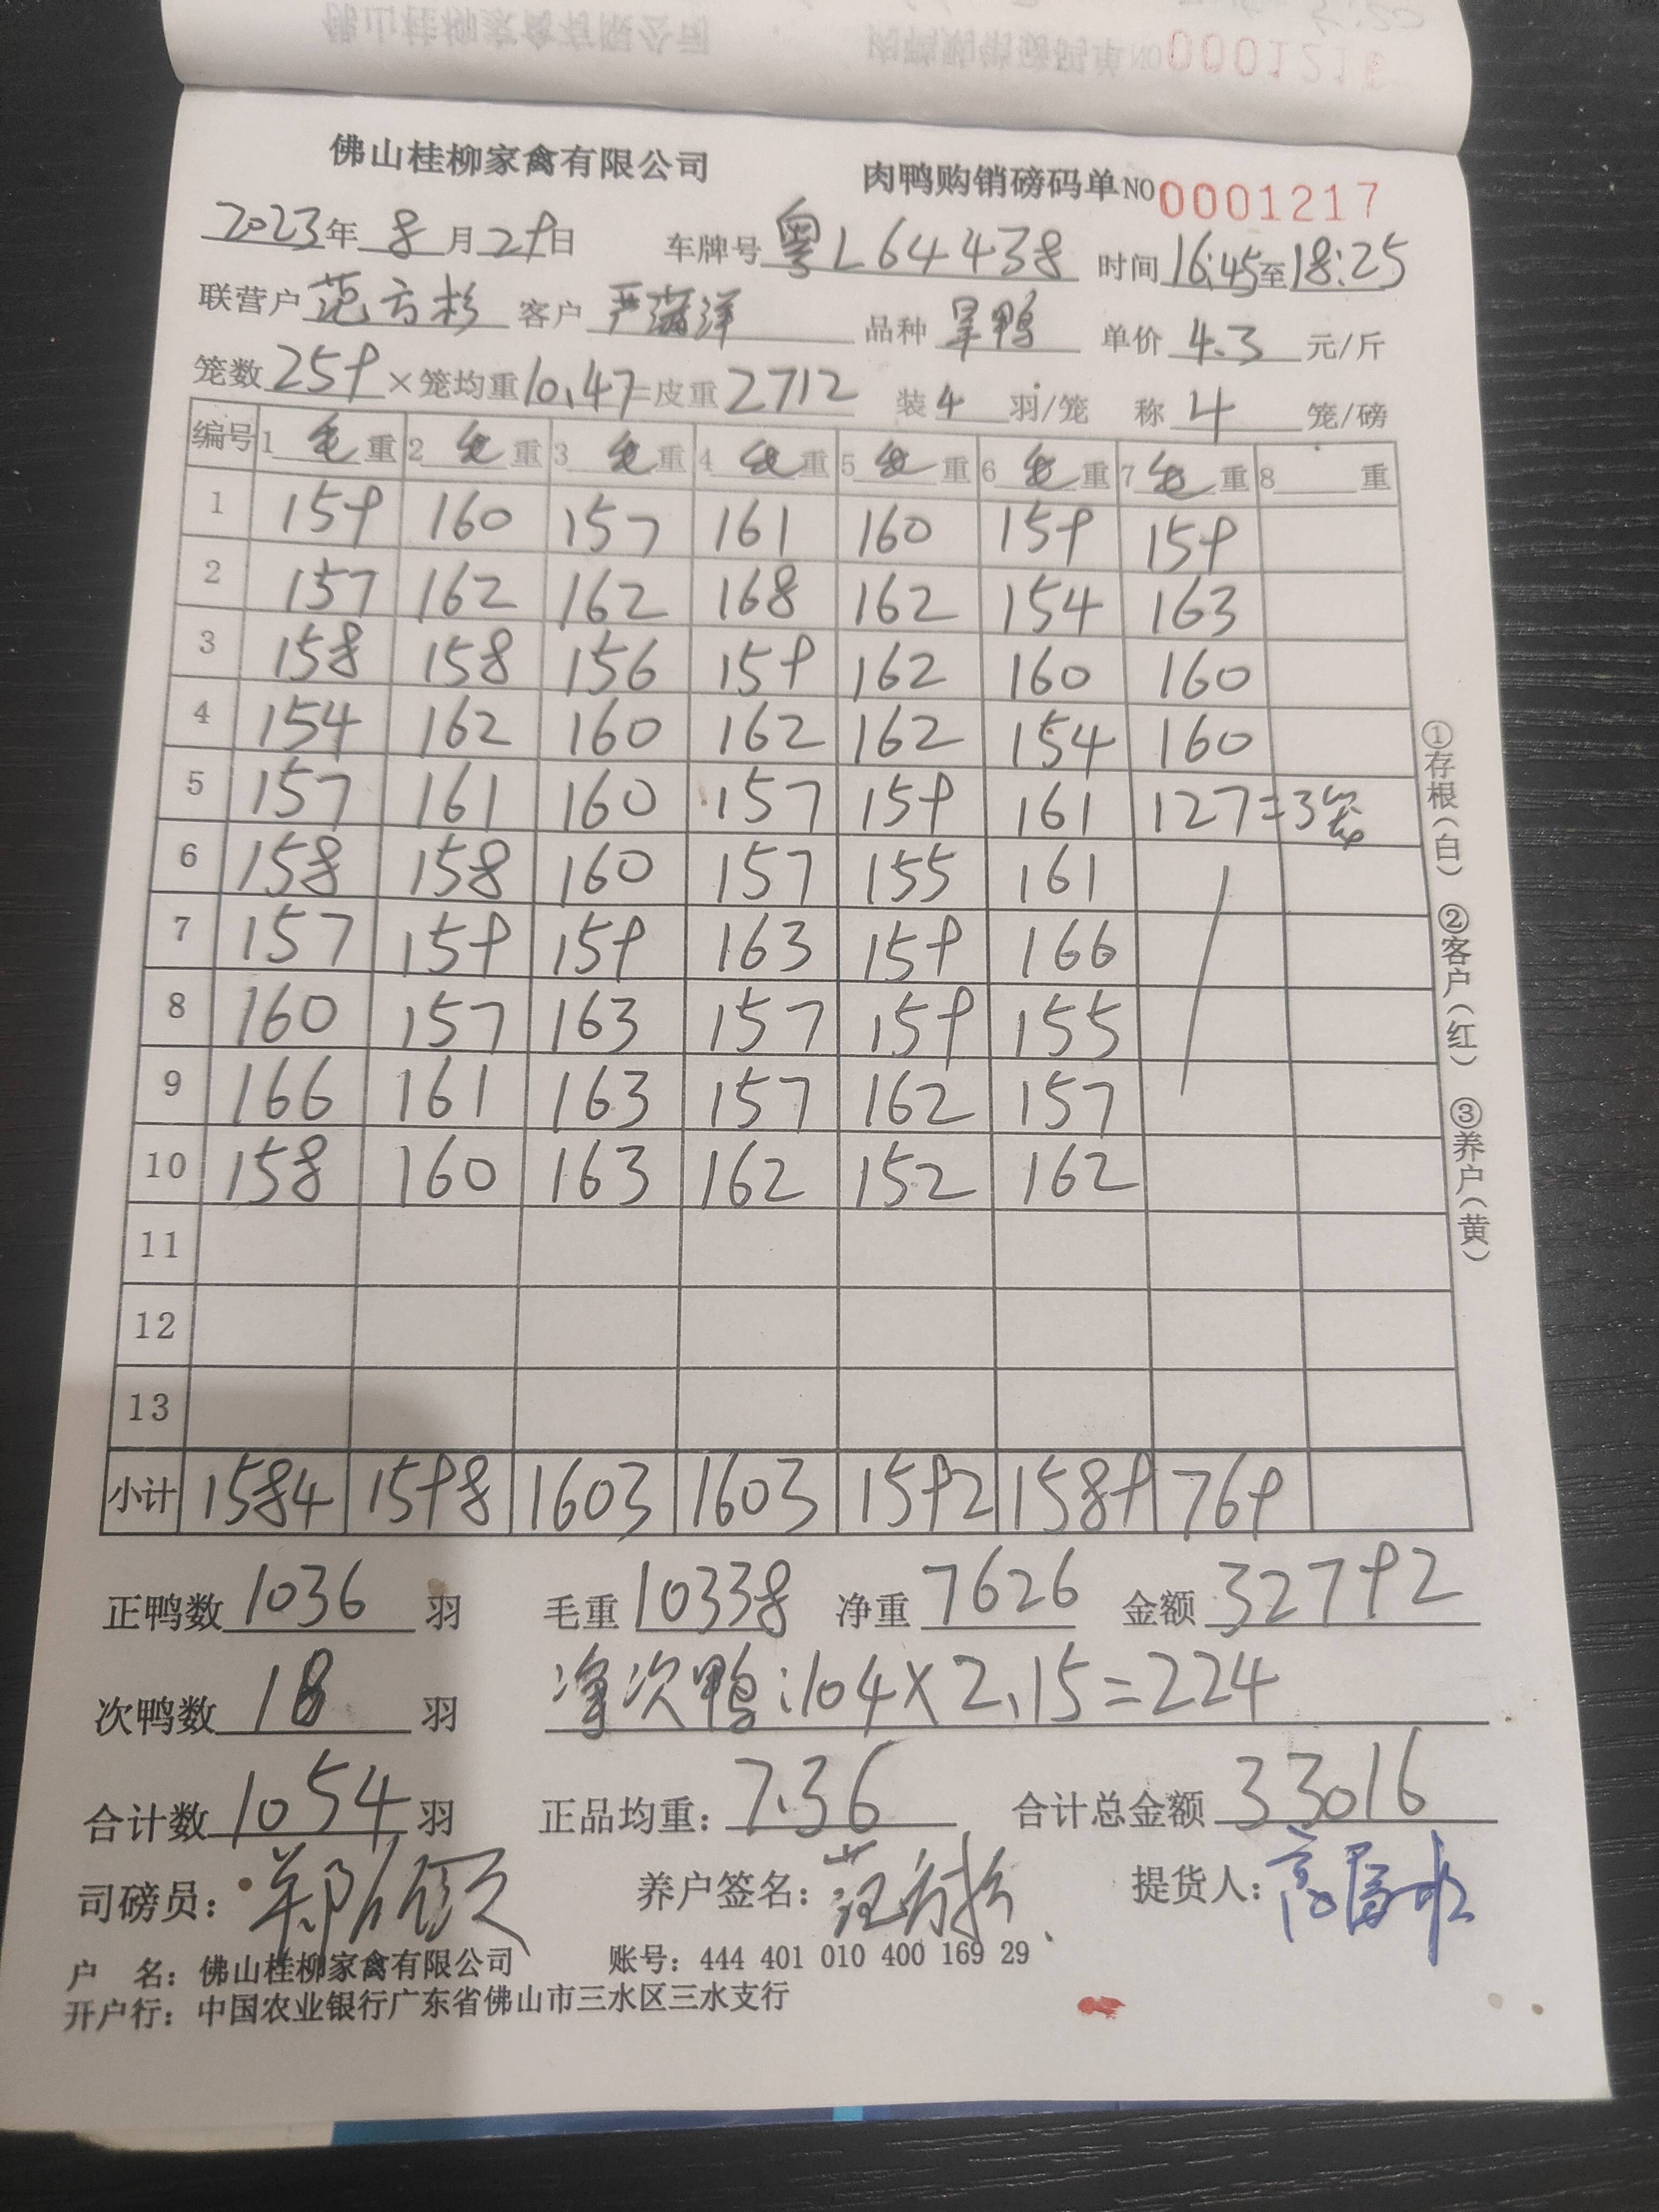 佛山桂柳家禽有限公司 肉鸭购销磅码单 NO 0001217
2023年 8月29日 车牌号 粤L64438 时间 16:45至18:25
联营户 范方杉 客户 严潇洋 品种 旱鸭 单价 4.3 元/斤
笼数 259 ×笼均重 10.47 =皮重 2712 装 4 羽/笼 称 4 笼/磅
编号 1 毛 重 2 毛 重 3 毛 重 4 毛 重 5 毛 重 6 毛 重 7 毛 重 8 重
1 159 160 157 161 160 159 159
2 157 162 162 168 162 154 163
3 158 158 156 159 162 160 160
4 154 162 160 162 162 154 160
5 157 161 160 157 159 161 127=3笼
6 158 158 160 157 155 161
7 157 159 159 163 159 166
8 160 157 163 157 159 155
9 166 161 163 157 162 157
10 158 160 163 162 152 162
11
12
13
小计 1584 1598 1603 1603 1592 1589 769
①存根(白) ②客户(红) ③养户(黄)
正鸭数 1036 羽 毛重 10338 净重 7626 金额 32792
次鸭数 18 羽 净次鸭:104×2.15=224
合计数 1054 羽 正品均重: 7.36 合计总金额 33016
司磅员: 养户签名: 范方杉 提货人:
户 名: 佛山桂柳家禽有限公司 账号: 444 401 010 400 169 29
开户行: 中国农业银行广东省佛山市三水区三水支行